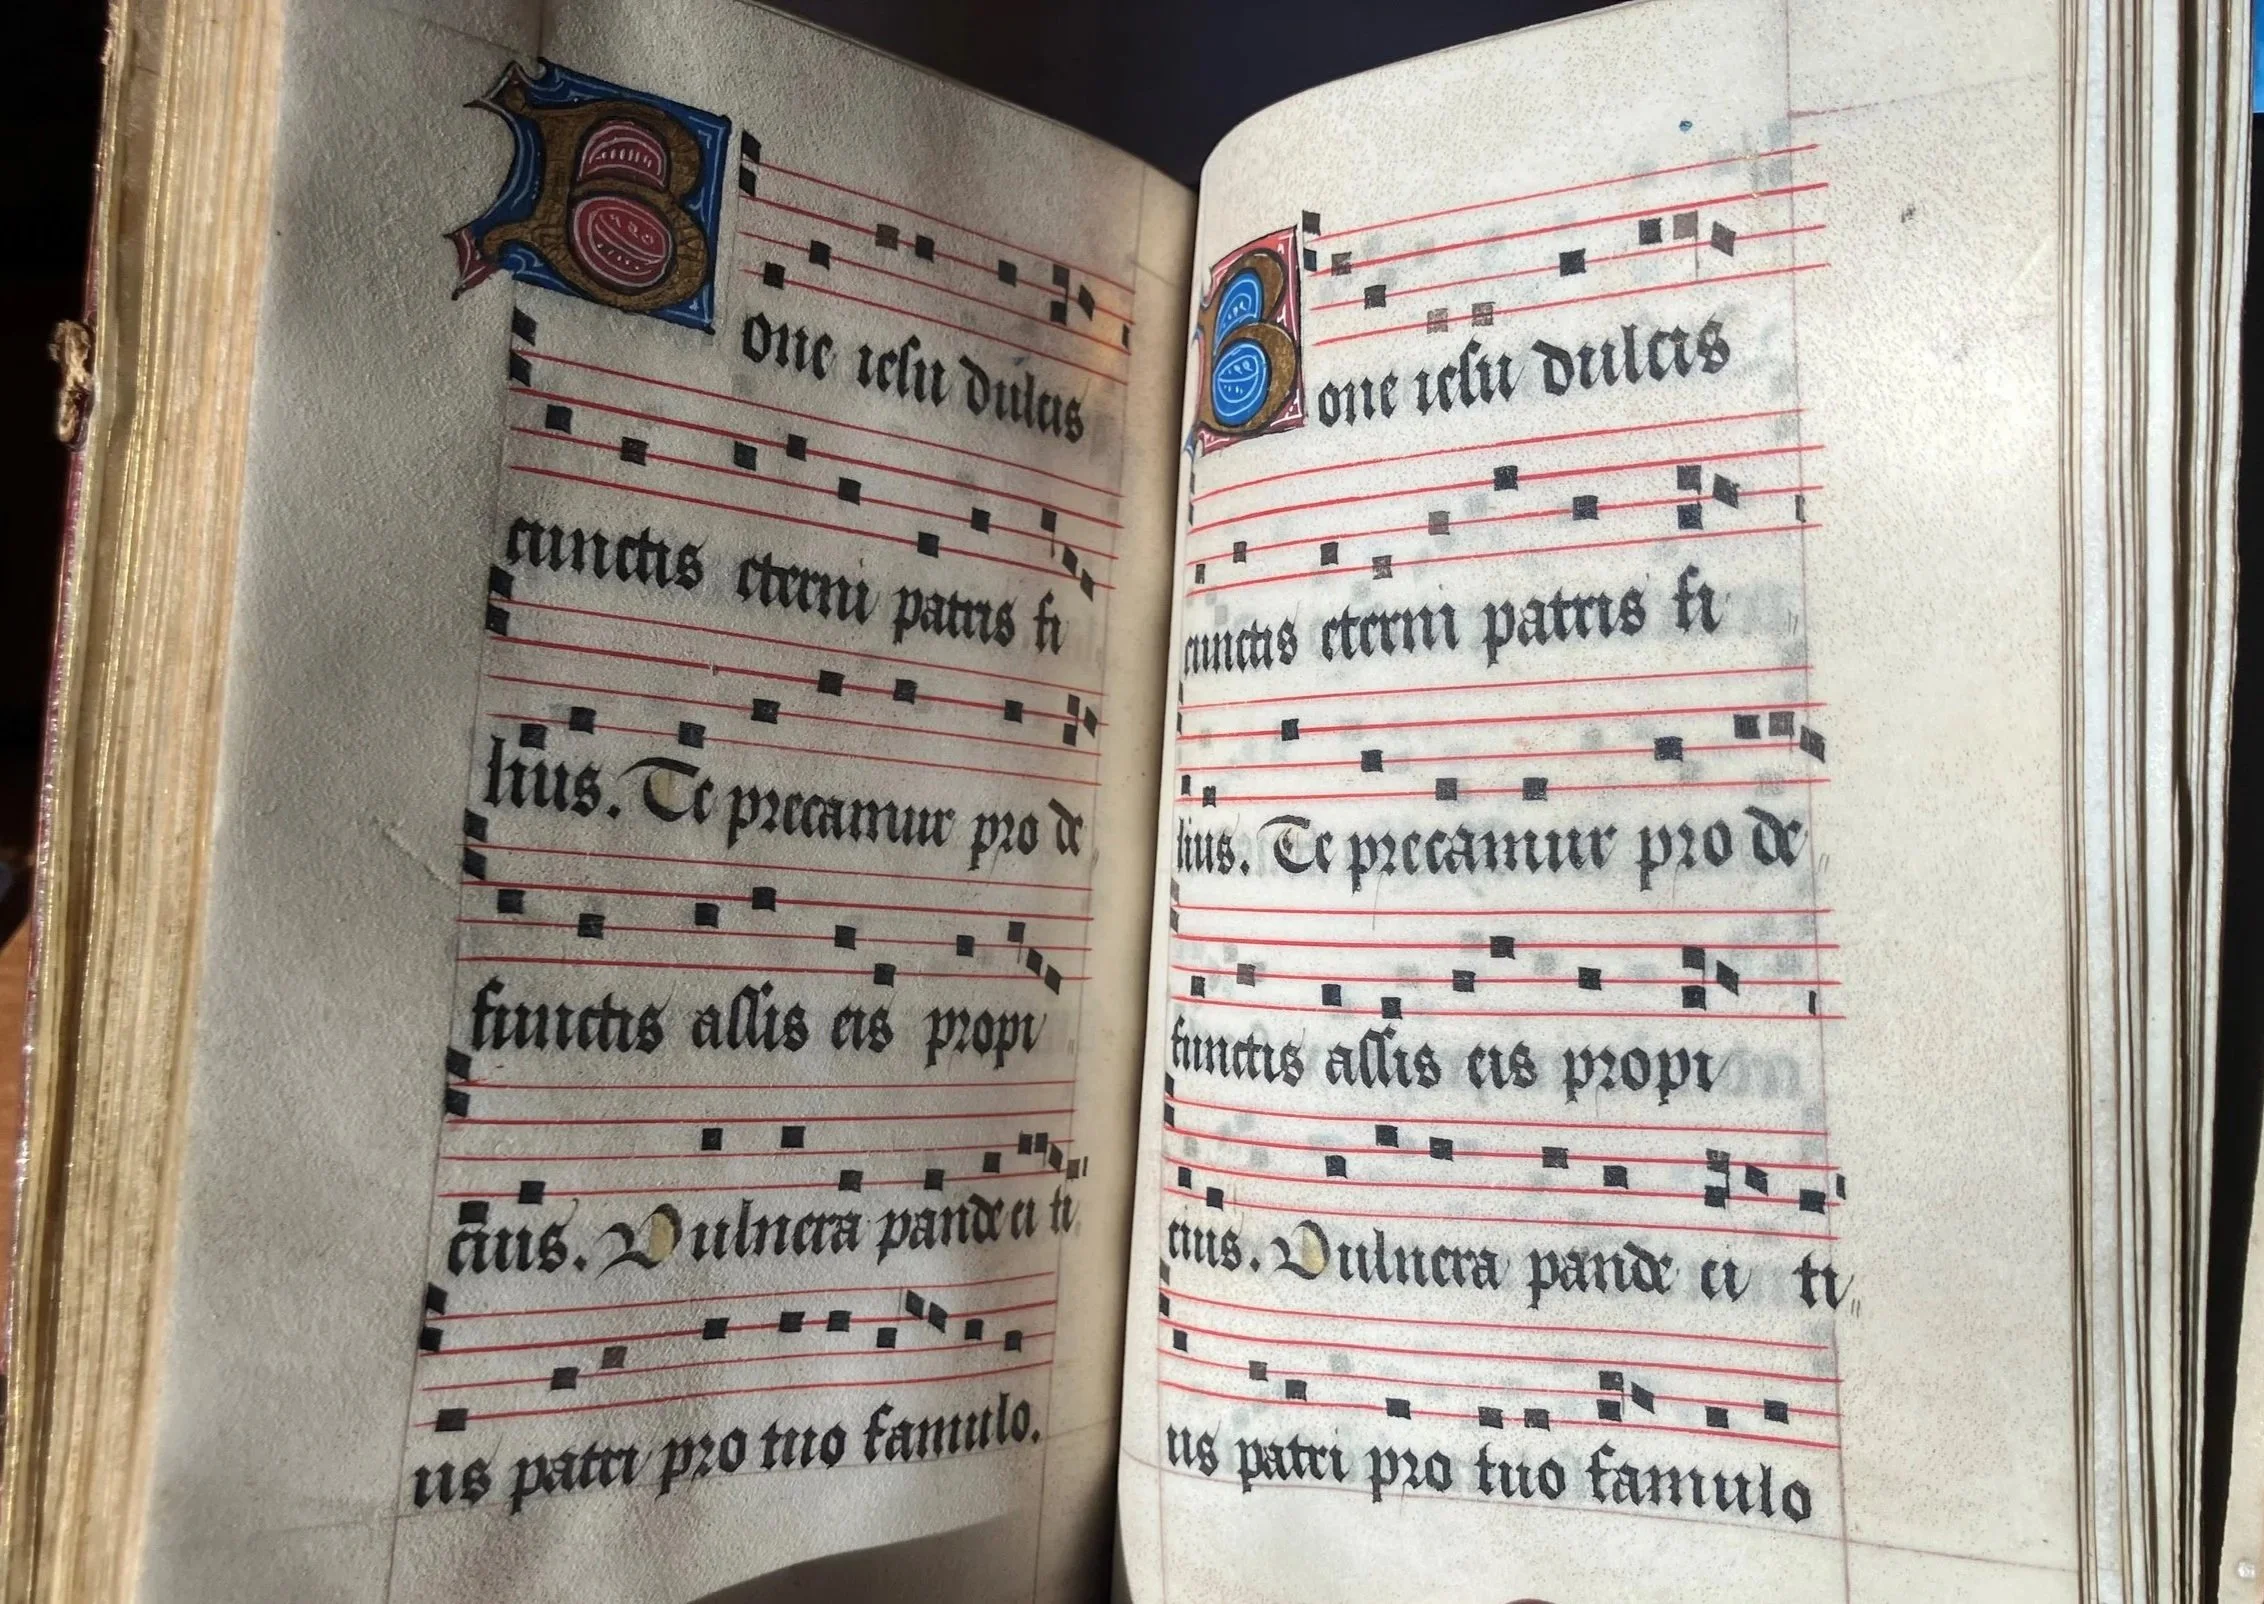 Bone iesu dulcis
cunctis eterni patris fi
lius. Te precamur pro de
functis assis eis propi
cius. Vulnera pande ei ti
us patri pro tuo famulo.
Bone iesu dulcis
cunctis eterni patris fi
lius. Te precamur pro de
functis assis eis propi
cius. Vulnera pande ei ti
us patri pro tuo famulo